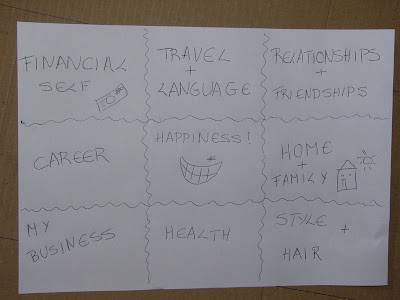 FINANCIAL
SELF
TRAVEL
+
LANGUAGE
RELATIONSHIPS
+
FRIENDSHIPS
CAREER
HAPPINESS!
HOME
+
FAMILY
MY
BUSINESS
HEALTH
STYLE
+
HAIR